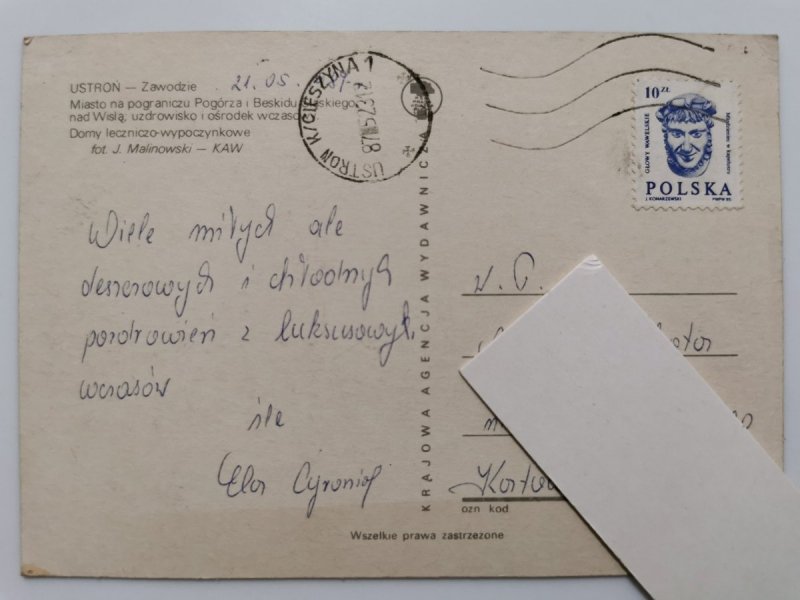 USTROŃ — Zawodzie
21.05.
Miasto na pograniczu Pogórza i Beskidu Śląskiego
nad Wisłą, uzdrowisko i ośrodek wczaso
Domy leczniczo-wypoczynkowe
fot. J. Malinowski — KAW
USTROŃ K/CIESZYNA 1
10 ZŁ
GŁOWY WAWELSKIE
POLSKA
J. KONARZEWSKI
PWPW 85
Wiele miłych ale
deszczowych i chłodnych
pozdrowień z luksusowych
wczasów
śle
KRAJOWA AGENCJA WYDAWNICZA
W. P.
ozn kod
Wszelkie prawa zastrzeżone